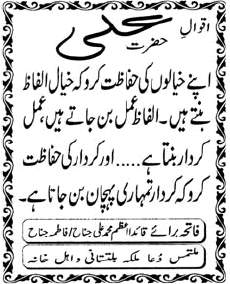 اقوالِ
حضرت علی
اپنے خیالوں کی حفاظت کرو کہ خیال الفاظ
بنتے ہیں۔ الفاظ عمل بن جاتے ہیں، عمل
کردار بنتا ہے..... اور کردار کی حفاظت
کرو کہ کردار تمہاری پہچان بن جاتا ہے۔
فاتحہ برائے قائداعظم محمد علی جناح/فاطمہ جناح
ملتمس دُعا ملکہ بلتستانی و اہل خانہ